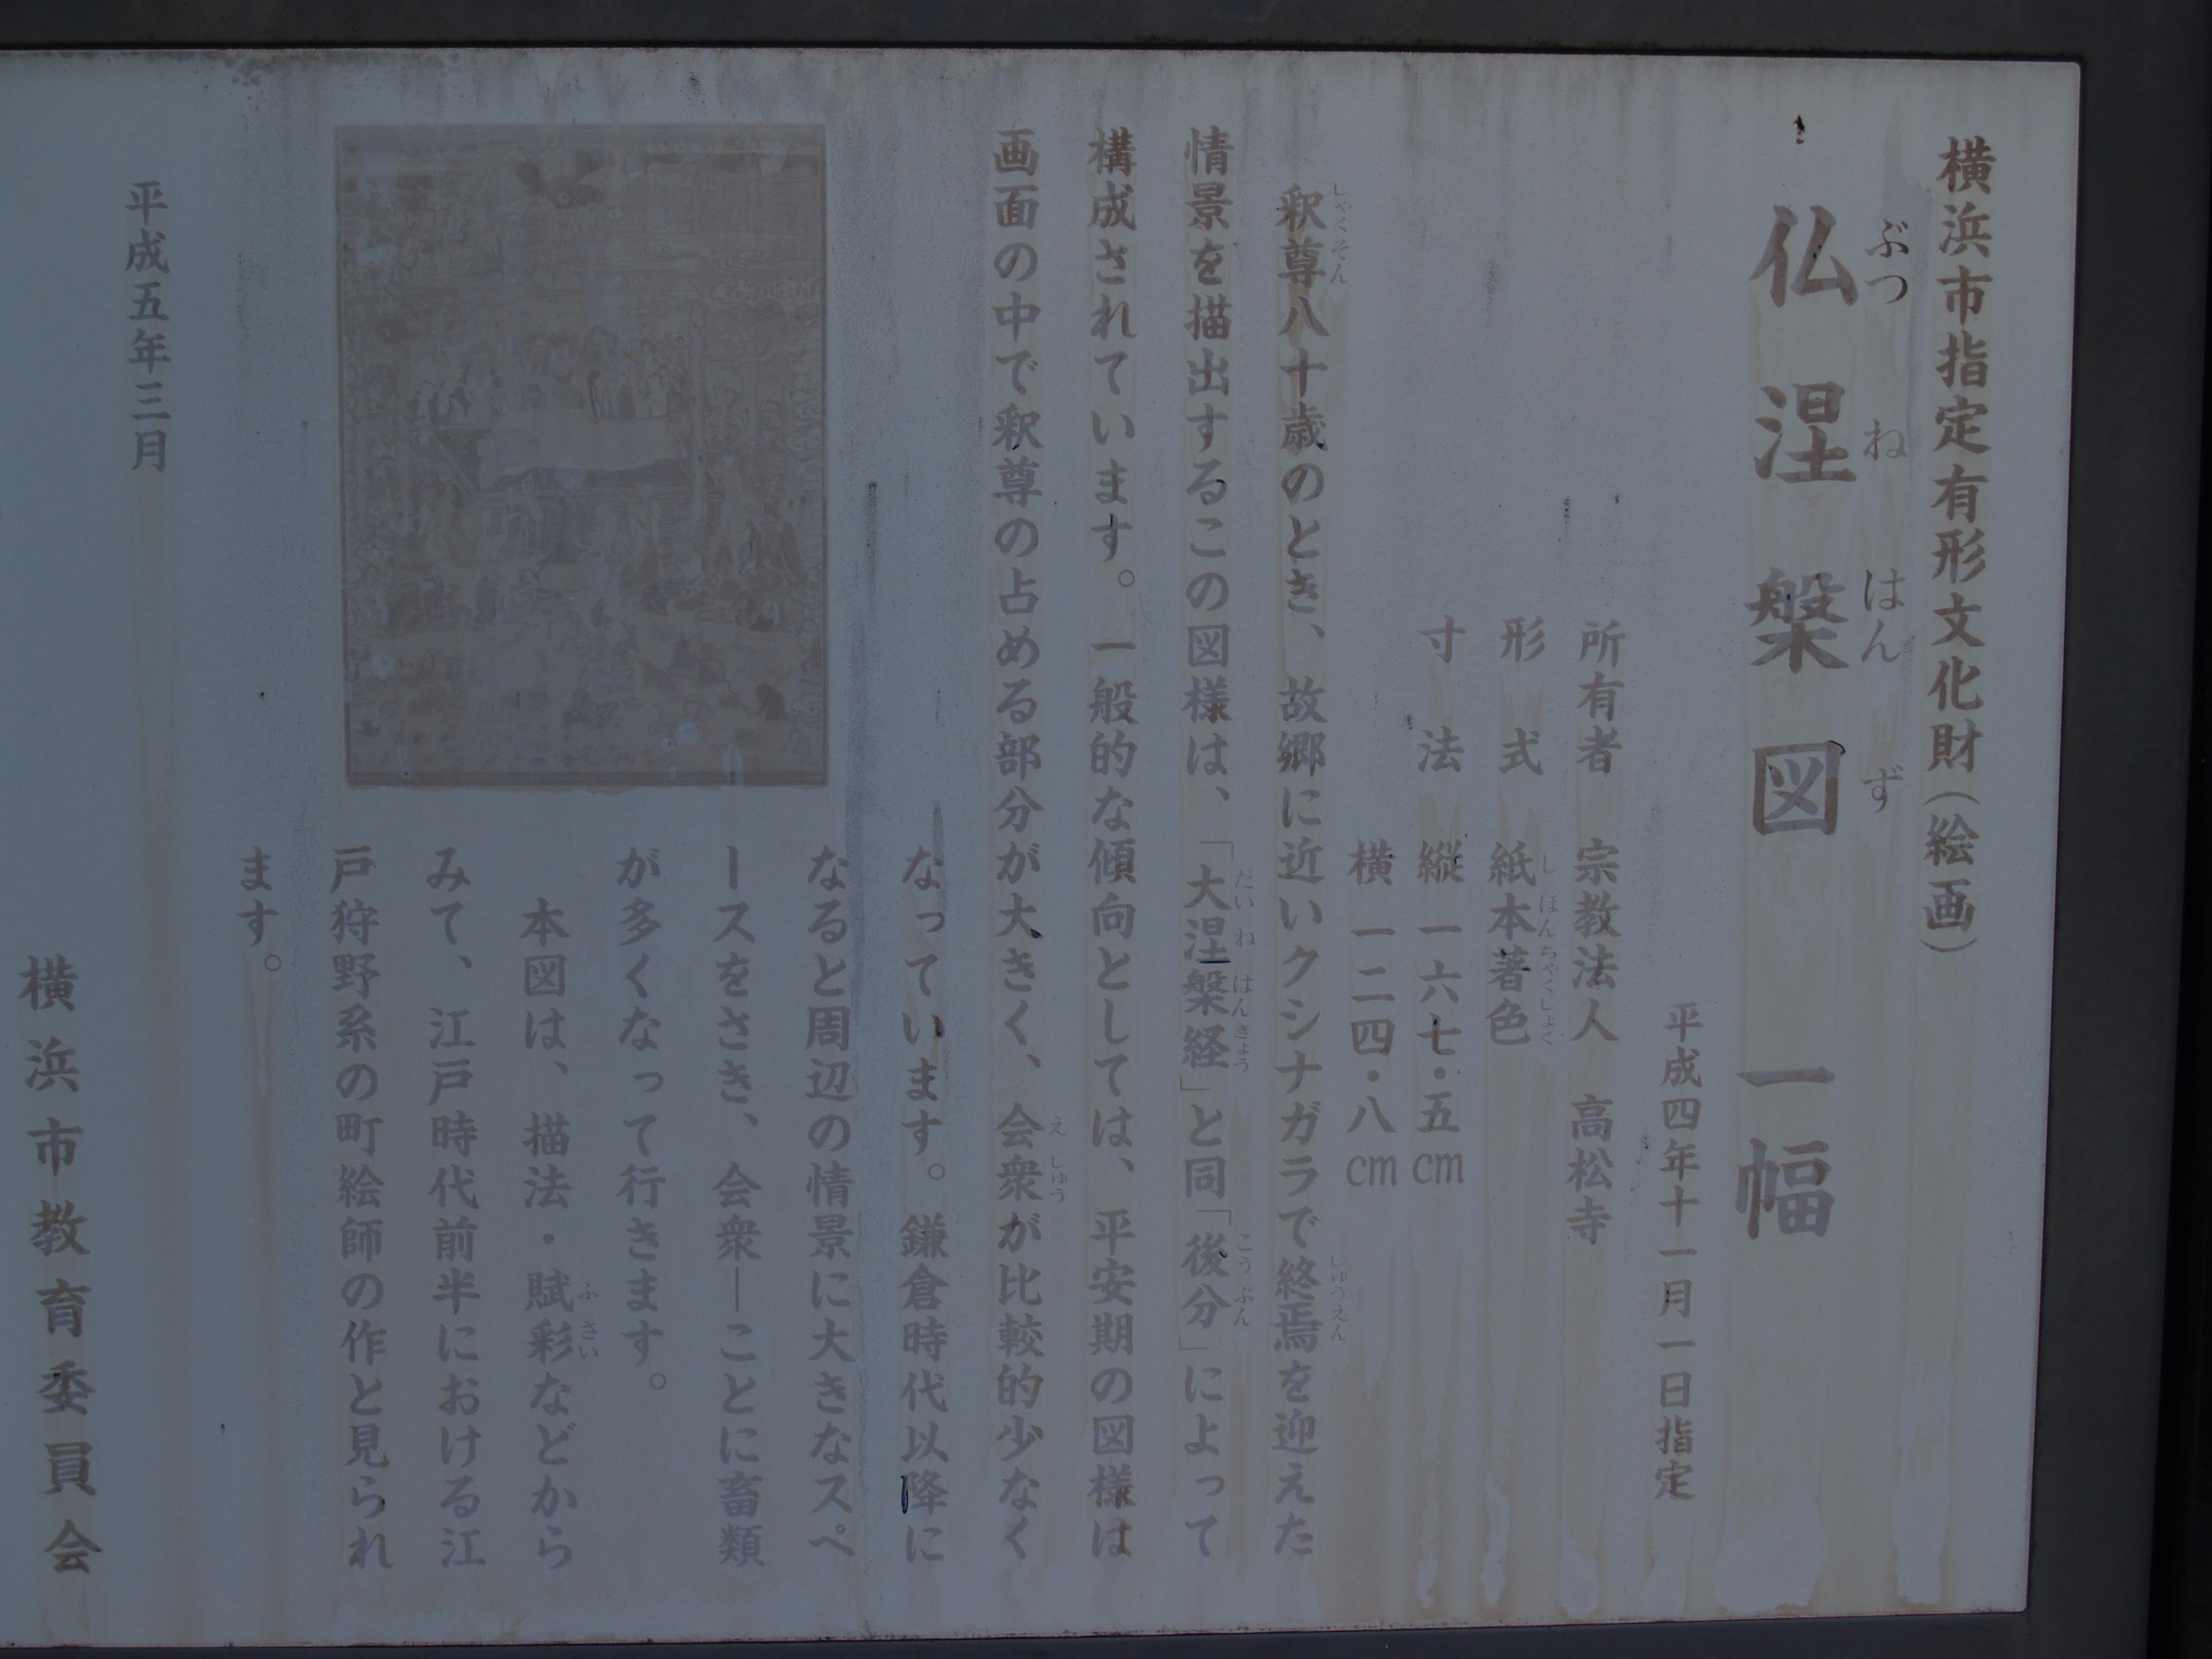 横浜市指定有形文化財(絵画)
仏涅槃図 一幅
ぶつ ね はん ず
平成四年十一月一日指定
所有者 宗教法人 高松寺
形式 紙本著色
し ほんちゃくしょく
寸法 縦 一六七・五cm
横 一二四・八cm
釈尊八十歳のとき、故郷に近いクシナガラで終焉を迎えた
しゃくそん しゅうえん
情景を描出するこの図様は、「大涅槃経」と同「後分」によって
だい ね はんきょう こう ぶん
構成されています。一般的な傾向としては、平安期の図様は
画面の中で釈尊の占める部分が大きく、会衆が比較的少なく
え しゅう
なっています。鎌倉時代以降に
なると周辺の情景に大きなスペ
ースをさき、会衆―ことに畜類
が多くなって行きます。
本図は、描法・賦彩などから
ふ さい
みて、江戸時代前半における江
戸狩野系の町絵師の作と見られ
ます。
平成五年三月
横浜市教育委員会